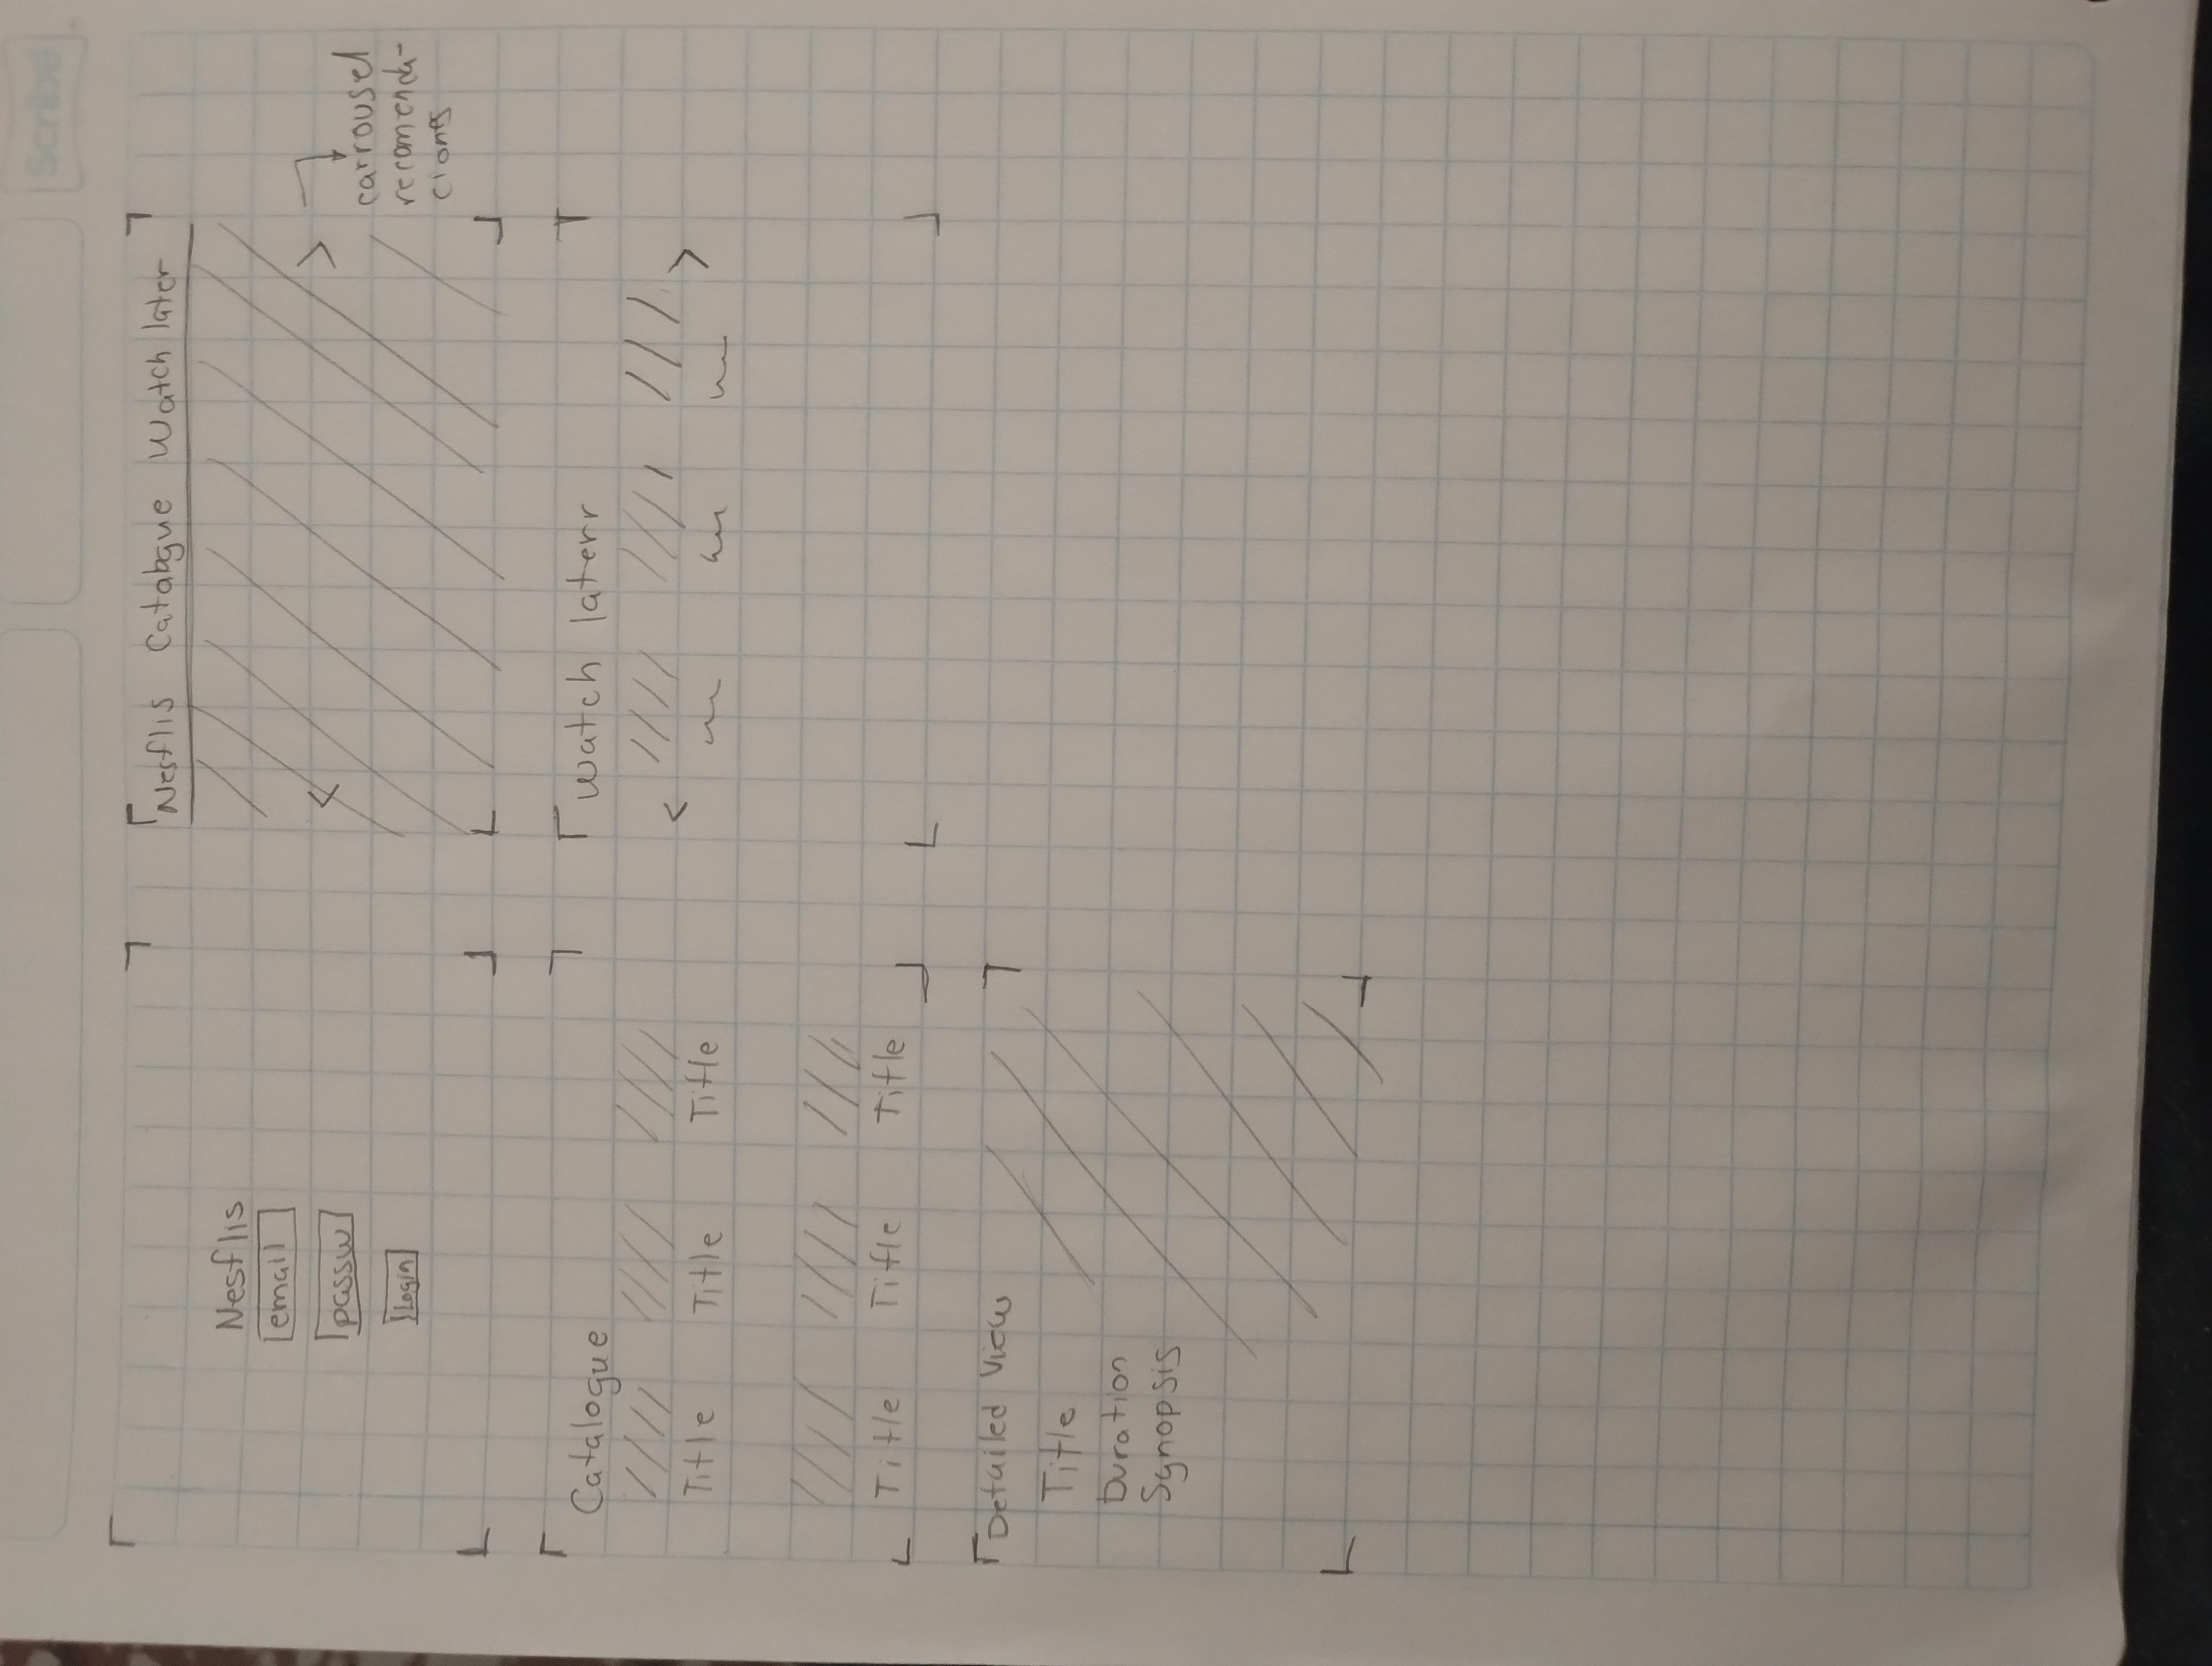 Scribe
Nesflis
email
passw
Login
Nesflis Catalogue Watch later
carrousel
recomenda-
ciones
Catalogue
Title Title Title
Title Title Title
Watch laterr
Detailed View
Title
Duration
Synopsis